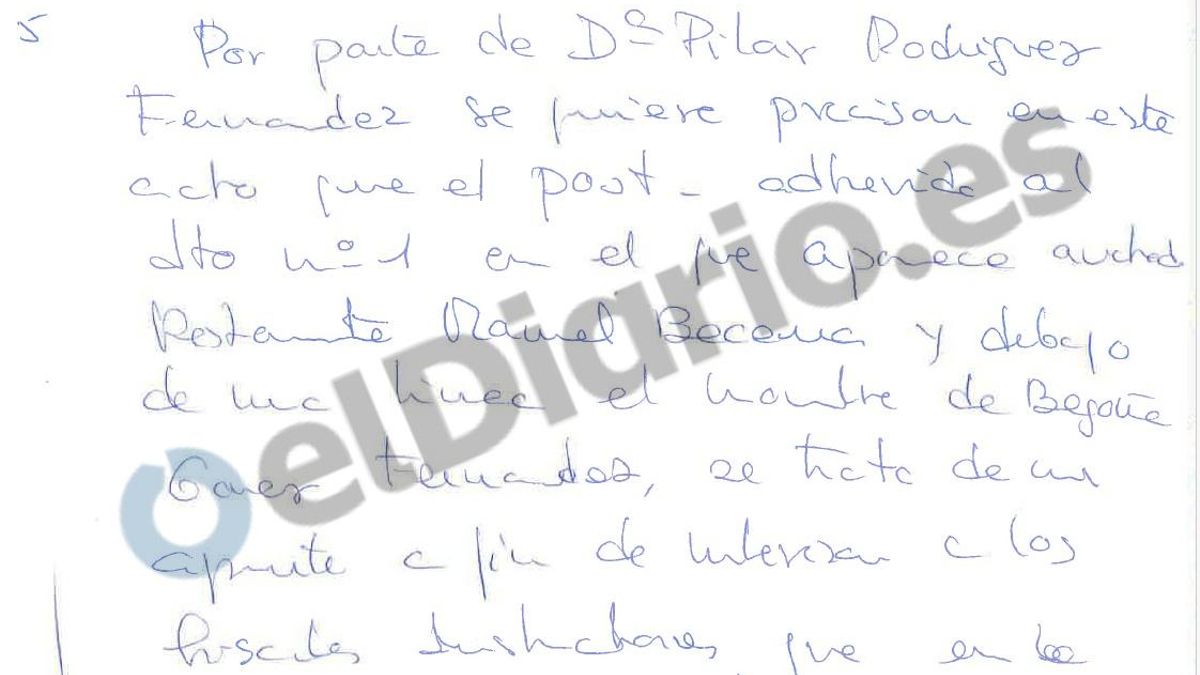 5
Por parte de Dª Pilar Rodriguez
Fernandez se quiere precisar en este
acto que el post - adherido al
dto nº 1 en el que aparece
Restante Manuel Becerra y debajo
de una linea el nombre de Begoña
Gomez Fernandez, se trata de un
apunte a fin de interesar a los
fiscales Instructores que en los
elDiario.es